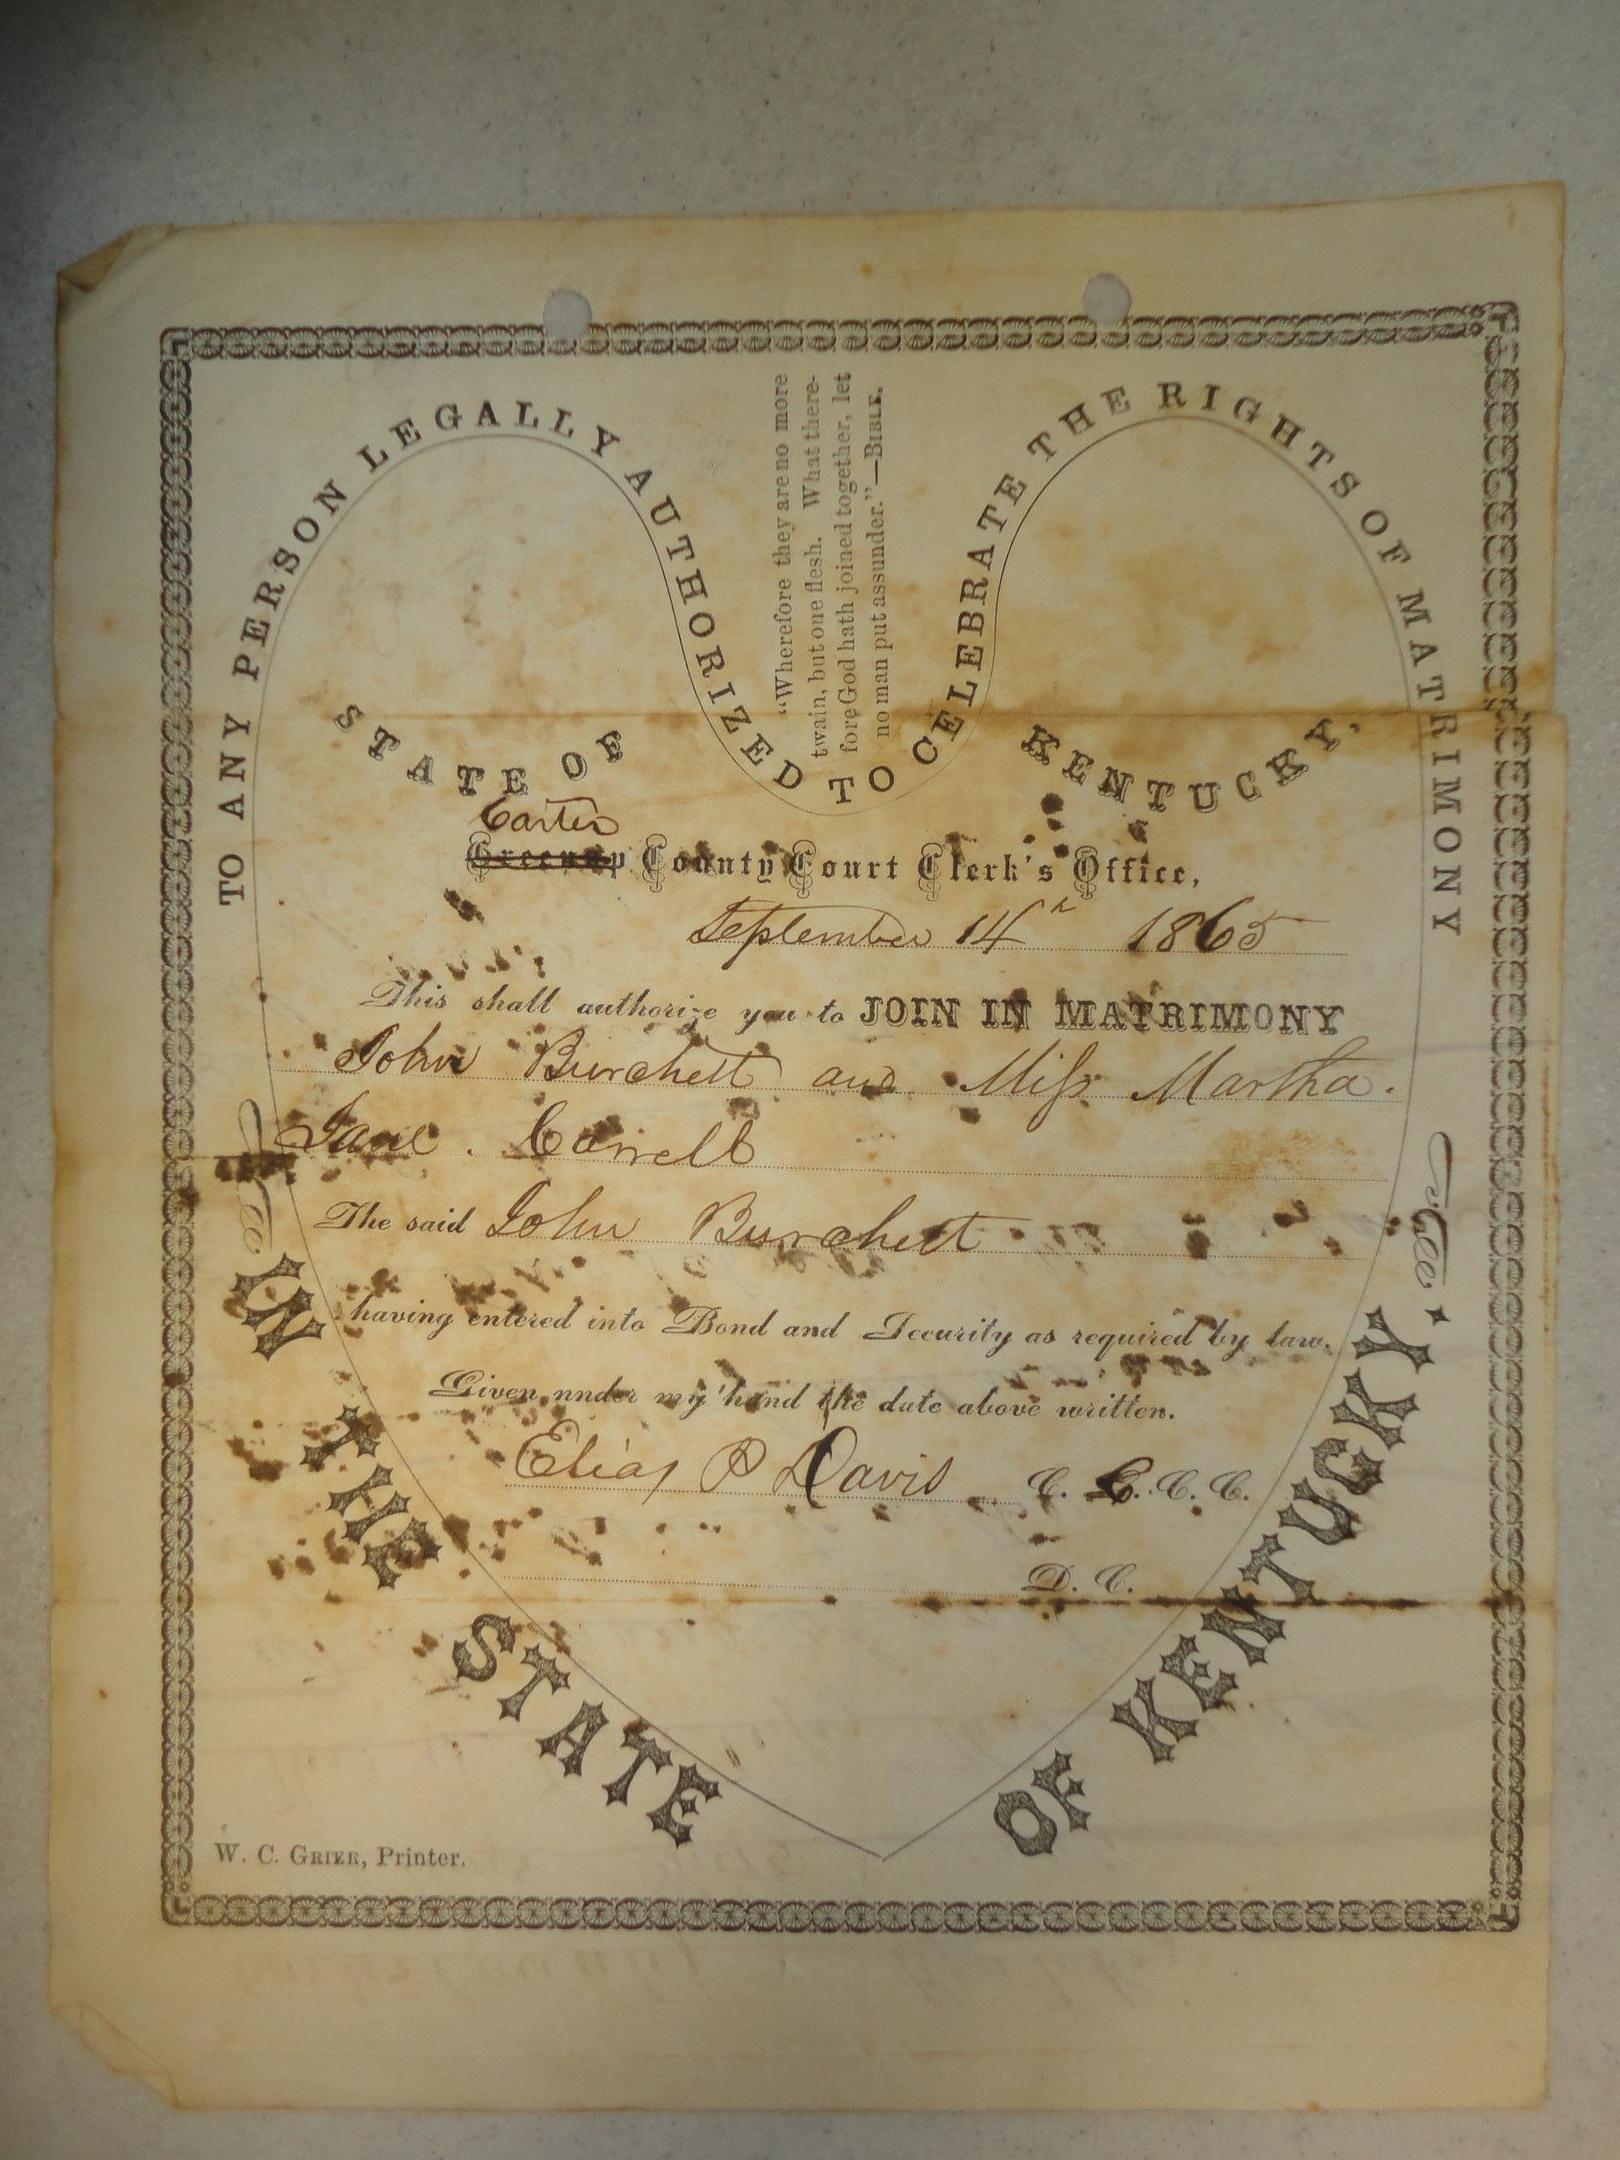 TO ANY PERSON LEGALLY AUTHORIZED TO CELEBRATE THE RIGHTS OF MATRIMONY
"Wherefore they are no more
twain, but one flesh. What there-
fore God hath joined together, let
no man put assunder."—BIBLE.
STATE OF KENTUCKY,
Carter
Greenup County Court Clerk's Office,
September 14th 1865
This shall authorize you to JOIN IN MATRIMONY
John Burchett and Miss Martha
Jane. Carrell
The said John Burchett
having entered into Bond and Security as required by law.
Given nnder my hand the date above written.
Elias P Davis C. C. C. C.
D. C.
IN THE STATE OF KENTUCKY.
W. C. GRIER, Printer.